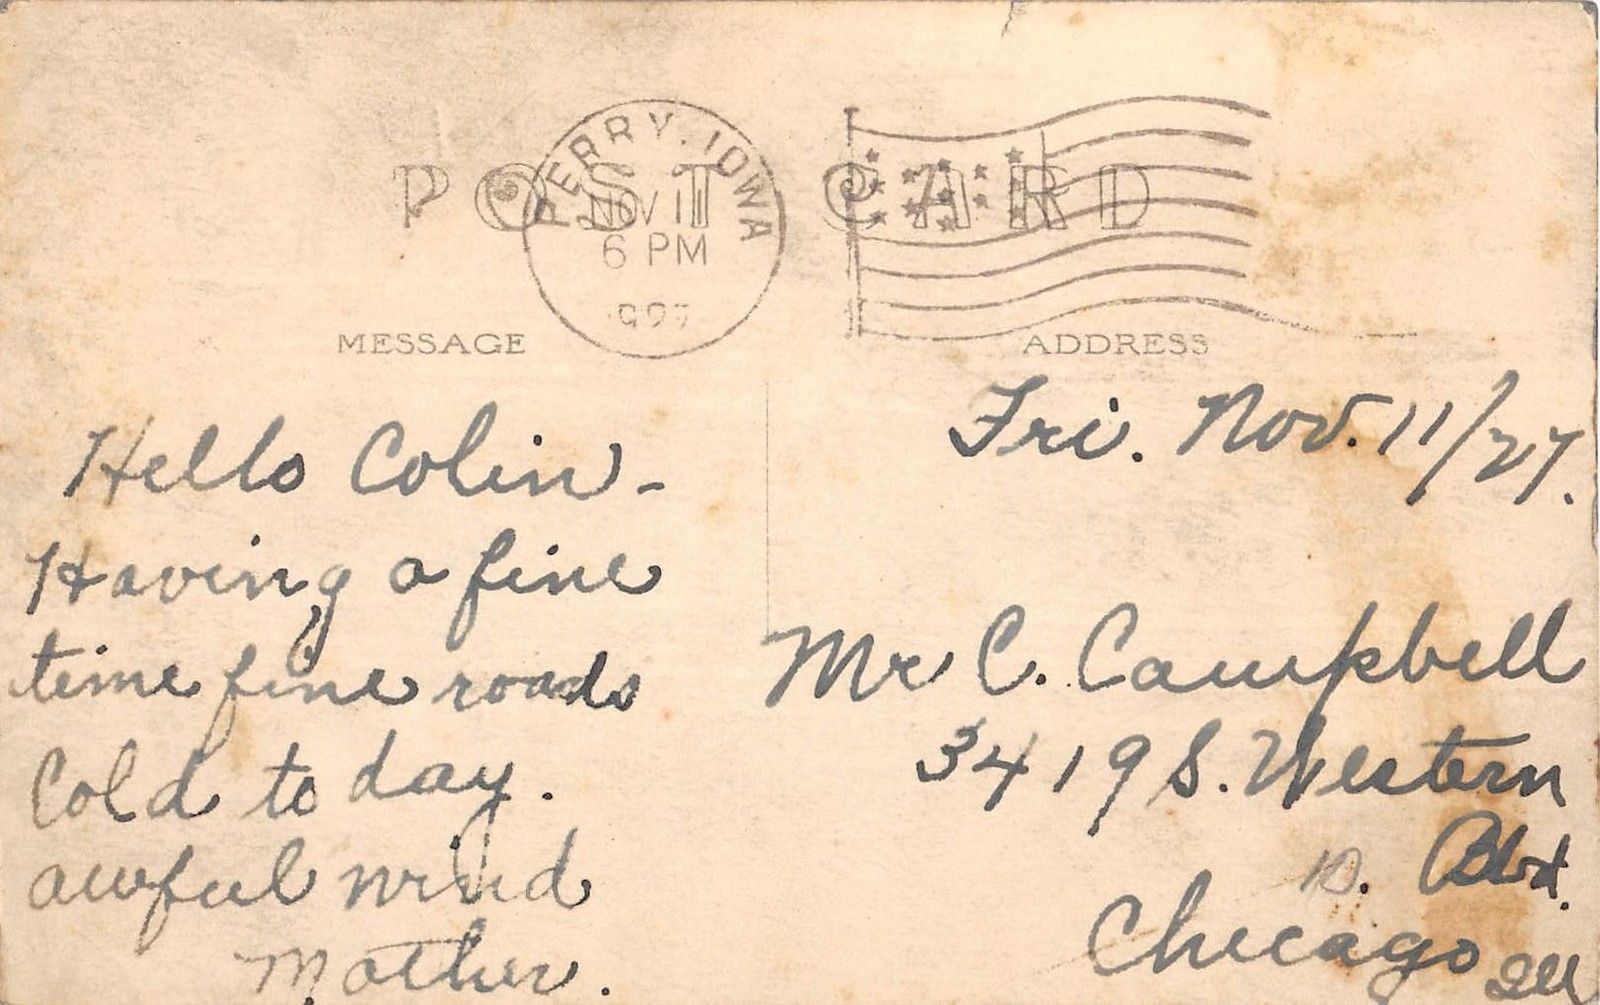 PERRY, IOWA
POST CARD
NOV 11
6 PM
MESSAGE
ADDRESS
Fri. Nov. 11/27.
Hello Colin -
Having a fine
time fine roads
Cold to day.
awful wind
Mother.
Mr C. Campbell
3419 S. Western
Blvd.
Chicago Ill